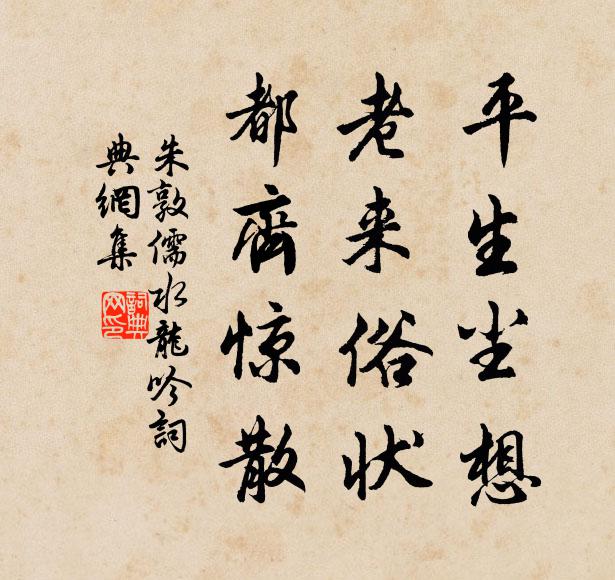 平生尘想
老来俗状
都齊惊散
朱敦儒水龍吟詞
典網集
詞典网印